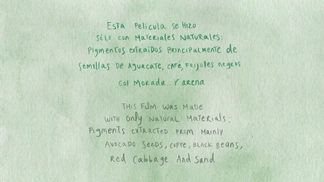 Esta Película se Hizo
Sólo con Materiales Naturales:
Pigmentos extraídos Principalmente de
semillas de Aguacate, café, Frijoles negros
col Morada. Y arena
THIS FILM WAS MADE
WITH Only NATURAL MATERIALS:
Pigments EXTRACTED FROM Mainly
AVOCADO SEEDS, COFFE, BLACK BEANS,
Red Cabbage And Sand